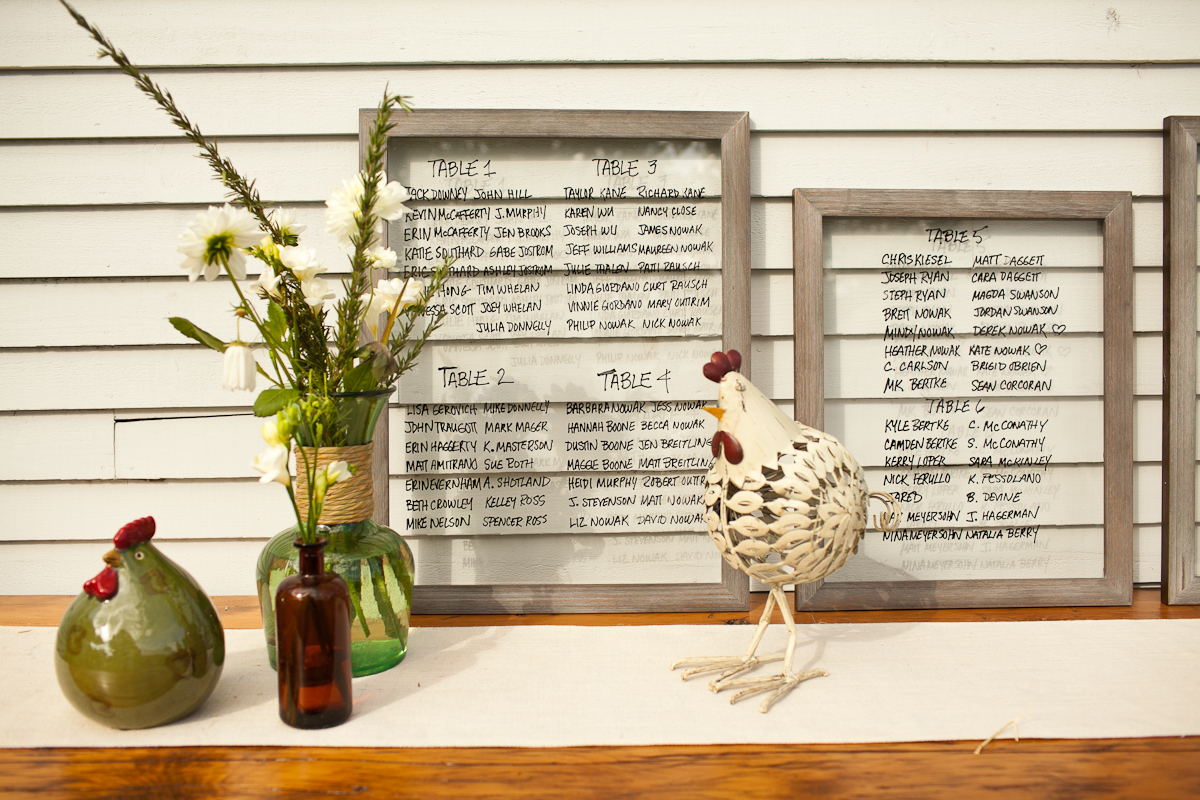 TABLE 1
JACK DOWNEY JOHN HILL
KEVIN MCCAFFERTY J. MURPHY
ERIN MCCAFFERTY JEN BROOKS
KATIE SOUTHARD GABE JOSTROM
SOUTHARD ASHLEY JOSTROM
HONG TIM WHELAN
VANESSA SCOTT JOEY WHELAN
JULIA DONNELLY
TABLE 3
TAYLOR KANE RICHARD KANE
KAREN WU NANCY CLOSE
JOSEPH WU JAMES NOWAK
JEFF WILLIAMS MAUREEN NOWAK
JULIE THALEN PATI RAUSCH
LINDA GIORDANO CURT RAUSCH
VINNIE GIORDANO MARY OUTTRIM
PHILIP NOWAK NICK NOWAK
TABLE 2
LISA GEROVICH MIKE DONNELLY
JOHN TRAUGOTT MARK MAGER
ERIN HAGGERTY K. MASTERSON
MATT AMITRANO SUE ROTH
ERIN EVERNHAM A. SHOTLAND
BETH CROWLEY KELLEY ROSS
MIKE NELSON SPENCER ROSS
TABLE 4
BARBARA NOWAK JESS NOWAK
HANNAH BOONE BECCA NOWAK
DUSTIN BOONE JEN BREITLING
MAGGIE BOONE MATT BREITLING
HEIDI MURPHY ROBERT OUTTRIM
J. STEVENSON MATT NOWAK
LIZ NOWAK DAVID NOWAK
TABLE 5
CHRIS KIESEL MATT DAGGETT
JOSEPH RYAN CARA DAGGETT
STEPH RYAN MAGDA SWANSON
BRETT NOWAK JORDAN SWANSON
MINDY NOWAK DEREK NOWAK ♡
HEATHER NOWAK KATE NOWAK ♡
C. CARLSON BRIGID O'BRIEN
MK BERTKE SEAN CORCORAN
TABLE 6
KYLE BERTKE C. MCCONATHY
CAMDEN BERTKE S. MCCONATHY
KERRY LOPER SARA MCKINLEY
NICK FERULLO K. FESSOLANO
JARED B. DEVINE
MEYERSOHN J. HAGERMAN
NINA MEYERSOHN NATALIA BERRY